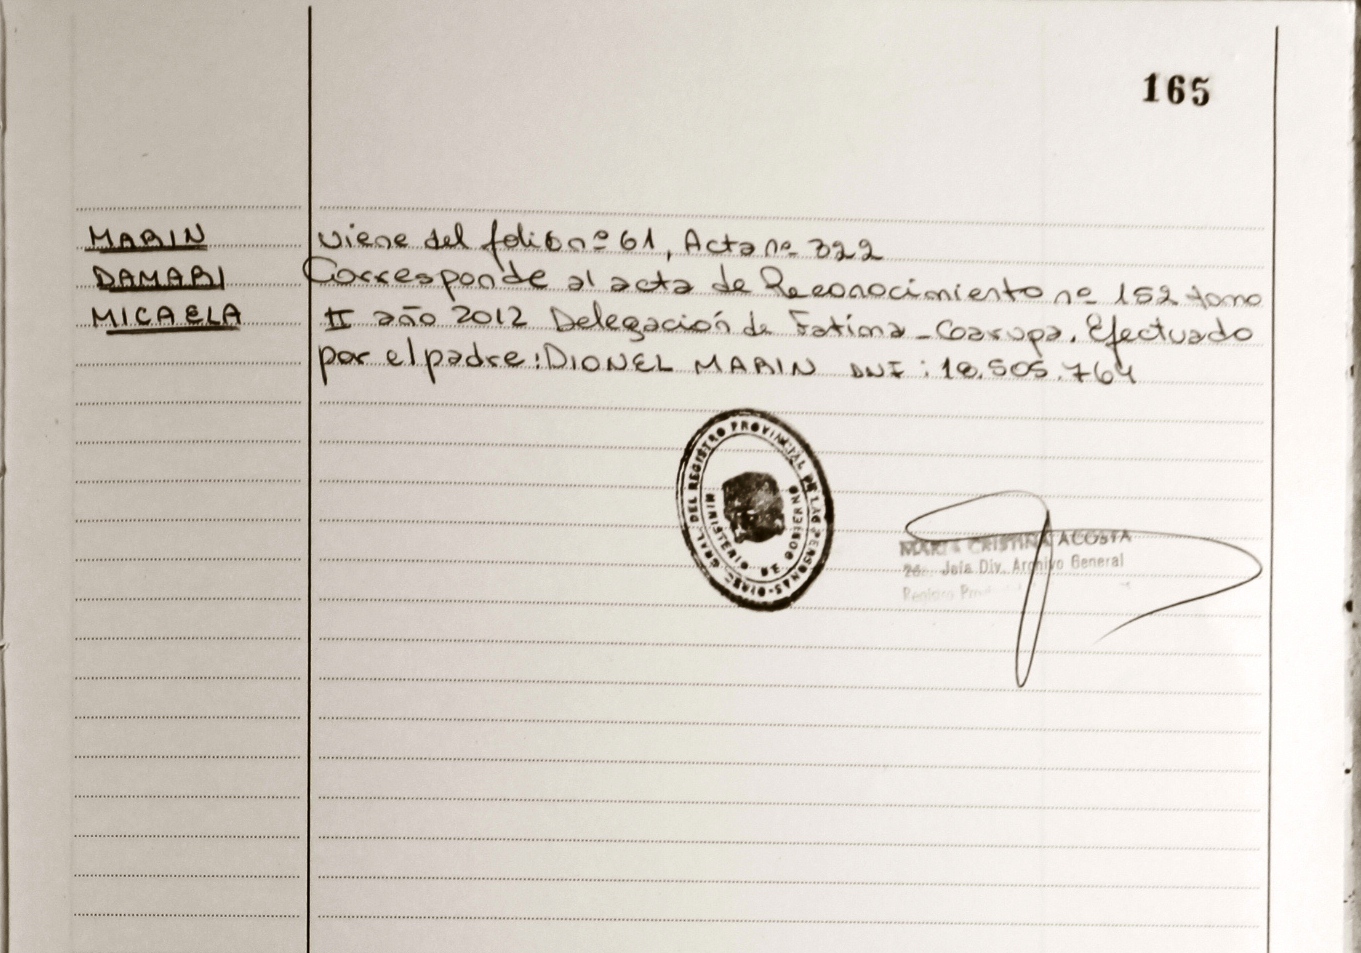 165
MARIN
DAMARI
MICAELA
viene del folio nº 61, Acta nº 322
Corresponde al acta de Reconocimiento nº 152 tomo
II año 2012 Delegación de Fatima - Garupa. Efectuado
por el padre: DIONEL MARIN DNI: 18.505.764
DIREC. GRAL. DEL REGISTRO PROVINCIAL DE LAS PERSONAS
MINISTERIO DE GOBIERNO
MARIA CRISTINA ACOSTA
Jefa Div. Archivo General
Registro